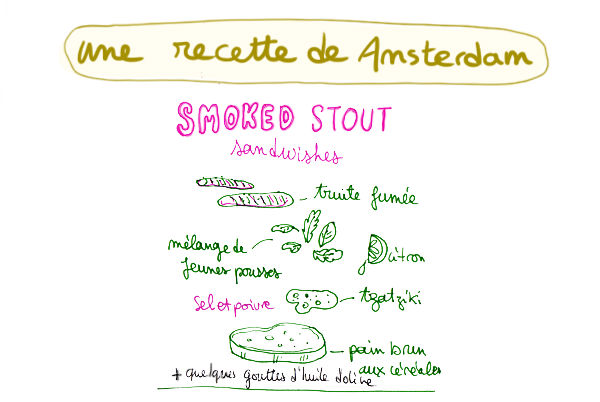 une recette de Amsterdam
SMOKED STOUT
sandwishes
truite fumée
mélange de
jeunes pousses
citron
Sel et poivre
tzatziki
pain brun
aux céréales
+ quelques gouttes d'huile d'olive